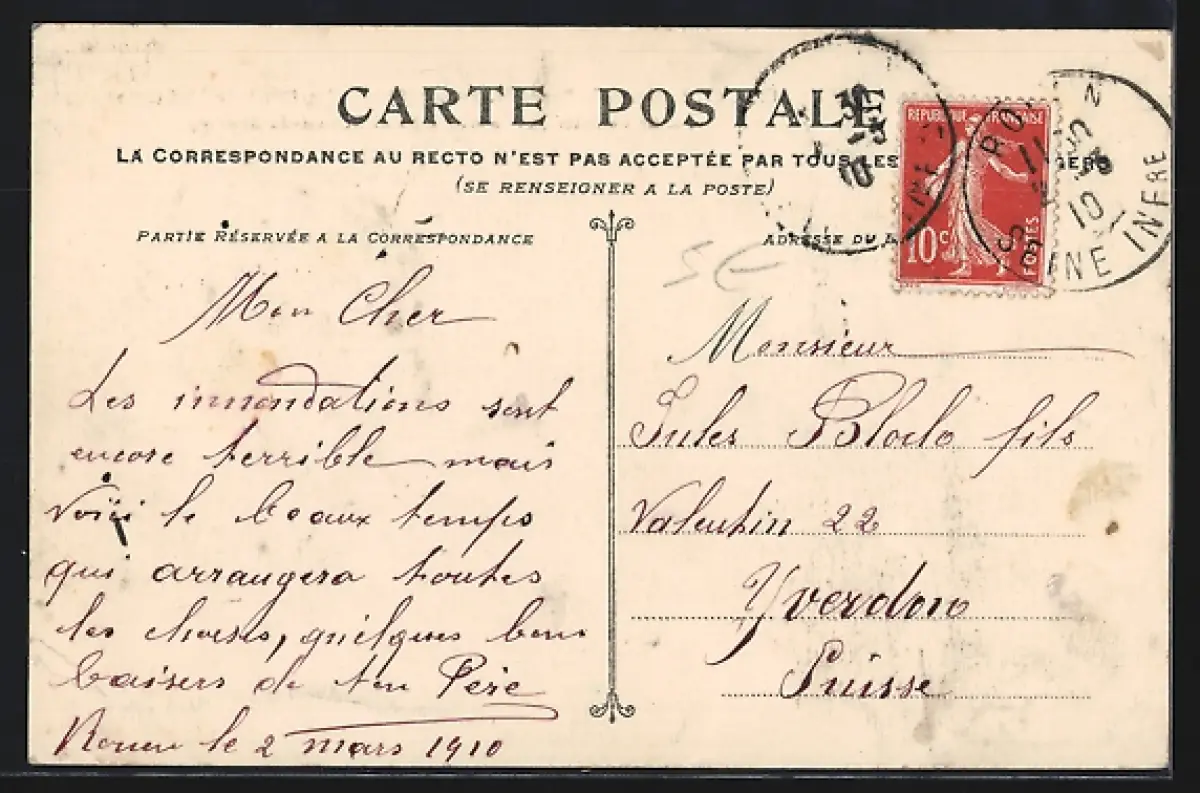 CARTE POSTALE
LA CORRESPONDANCE AU RECTO N'EST PAS ACCEPTÉE PAR TOUS LES
(SE RENSEIGNER A LA POSTE)
PARTIE RÉSERVÉE A LA CORRESPONDANCE
ADRESSE DU
REPUBLIQUE FRANÇAISE
10c
POSTES
SEINE INFRE
10
Mon Cher
Les innondations sont
encore terrible mais
voici le beaux temps
qui arrangera toutes
les choses, quelques bons
baisers de ton Père
Rouen le 2 mars 1910
Monsieur
Jules fils
Valentin 22
Yverdon
Suisse